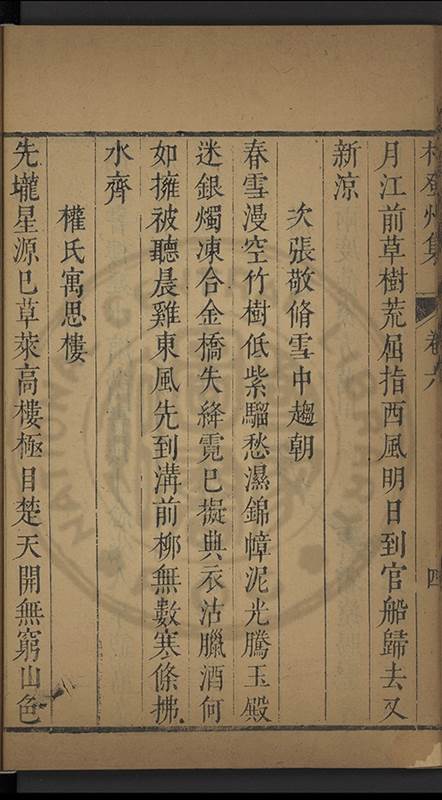 林登州集 卷六 四
月江前草樹荒屈指西風明日到官船歸去又
新涼
次張敬脩雪中趨朝
春雪漫空竹樹低紫騮愁濕錦幛泥光騰玉殿
迷銀燭凍合金橋失絳霓已擬典衣沽臘酒何
如擁被聽晨雞東風先到溝前柳無數寒條拂
水齊
權氏寓思樓
先壠星源已草萊高樓極目楚天開無窮山色